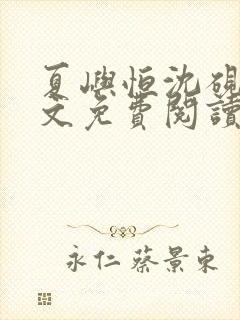 夏嶼恒沈硯
文免費閱讀
永仁蔡景東